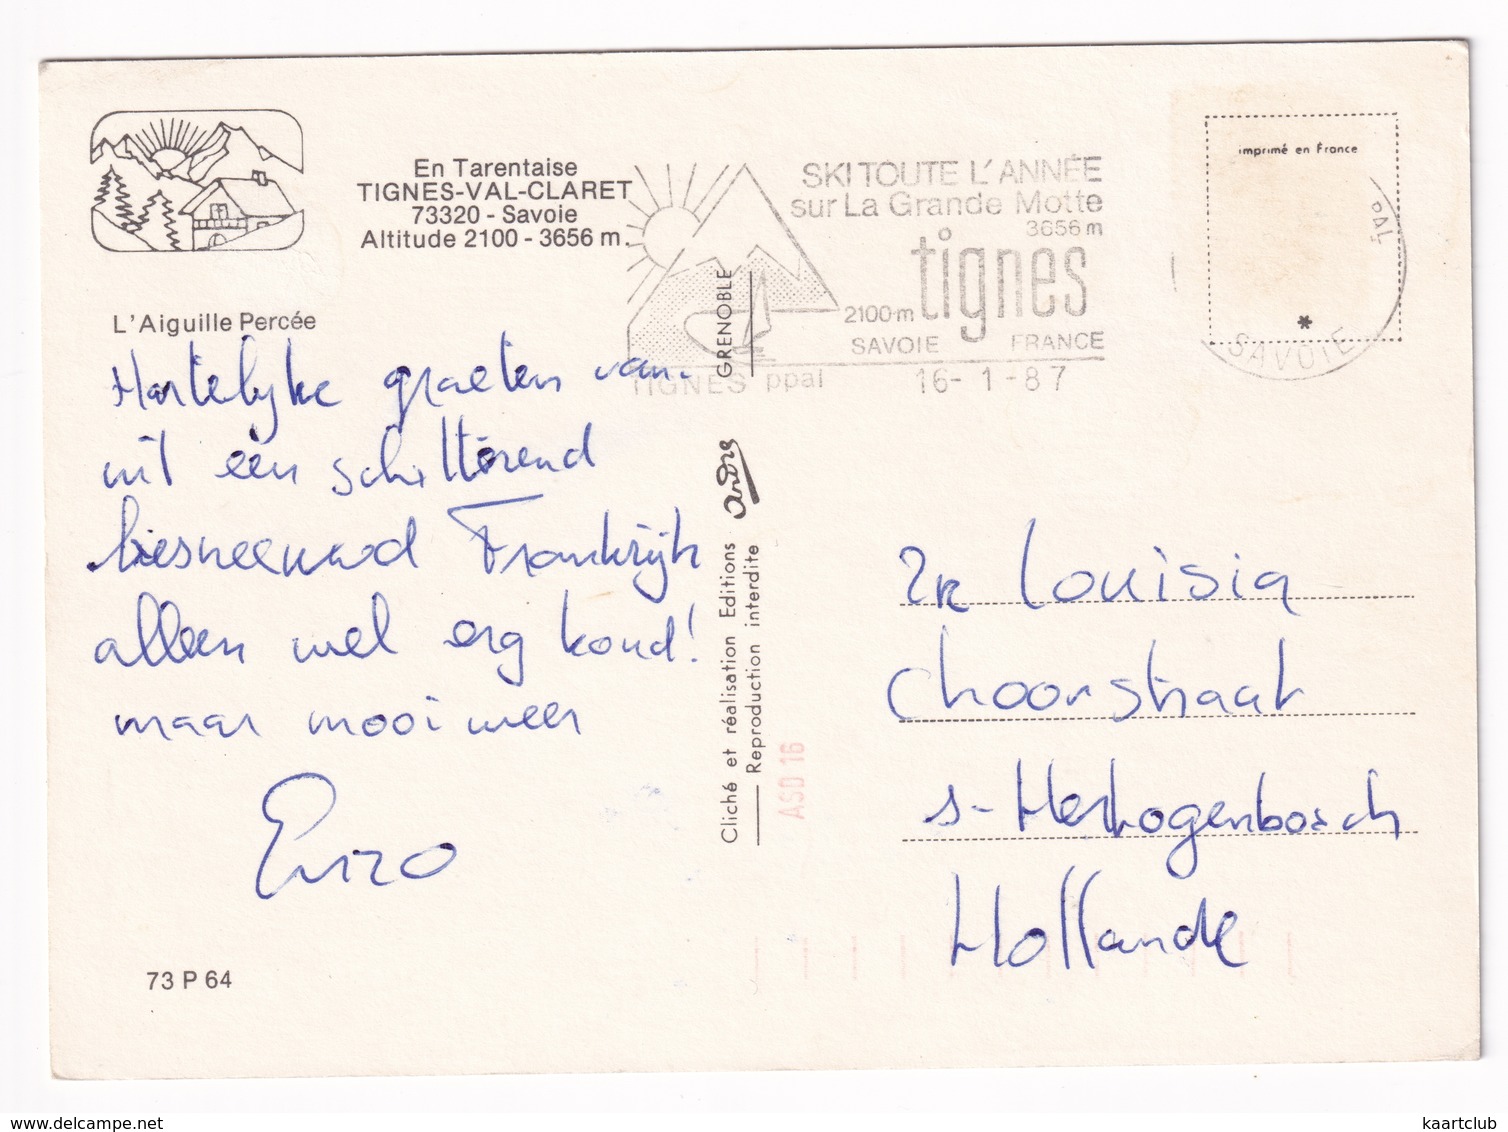 En Tarentaise
TIGNES-VAL-CLARET
73320 - Savoie
Altitude 2100 - 3656 m.
L'Aiguille Percée
Hartelijke groeten van.
uit een schitterend
besneeuwd Frankrijk
alleen wel erg koud!
maar mooi weer
Enzo
73 P 64
GRENOBLE
Cliché et réalisation Editions
Reproduction interdite
ASD 16
SKI TOUTE L'ANNÉE
sur La Grande Motte
3656 m
tignes
2100 m
SAVOIE FRANCE
TIGNES ppal 16-1-87
imprimé en France
*
SAVOIE
Louisia
Choorstraat
s-Hertogenbosch
Hollande
kaartclub